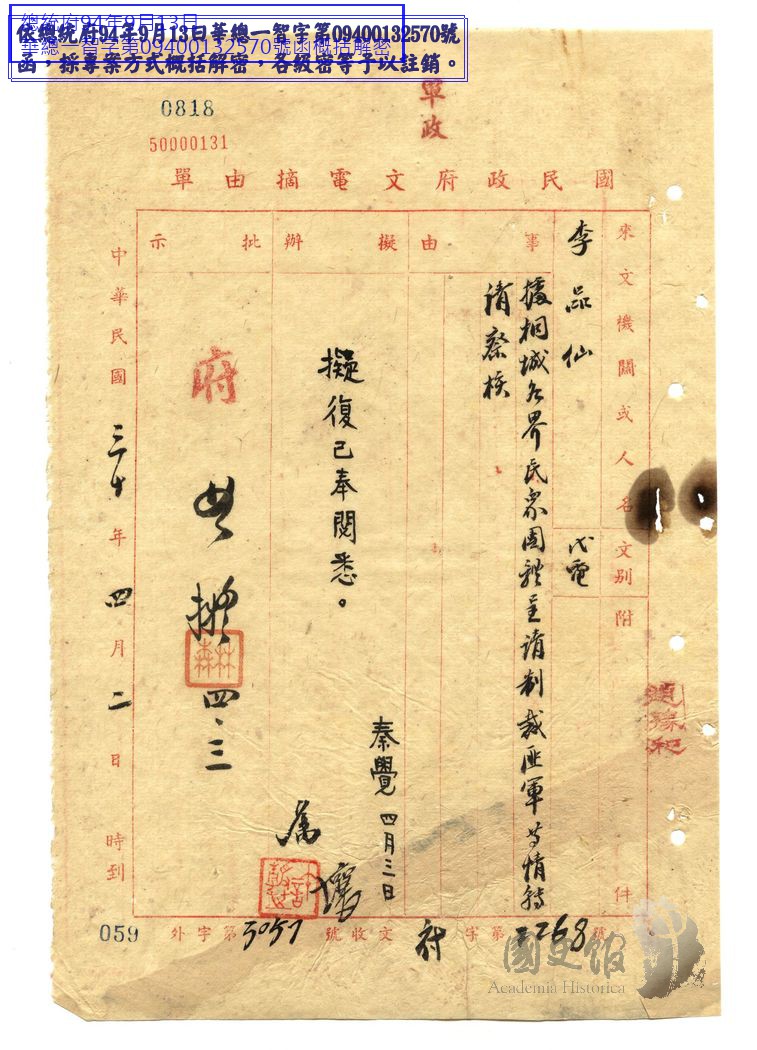 總統府94年9月13日
華總一智字第09400132570號函概括解密
依總統府94年9月13日華總一智字第09400132570號
函，採專案方式概括解密，各級密等予以註銷。
0818
50000131
軍政
國民政府文電摘由單
來文機關或人名
文別
附件
李品仙
代電
事由
據桐城各界民眾團體呈請制裁匪軍等情轉
請察核
擬辦
擬復已奉閱悉。
秦覺 四月三日
批示
府
四、三
中華民國三十年四月二日 時到
府字第3268號
收文
外字第5057號
059
國史館
Academia Historica